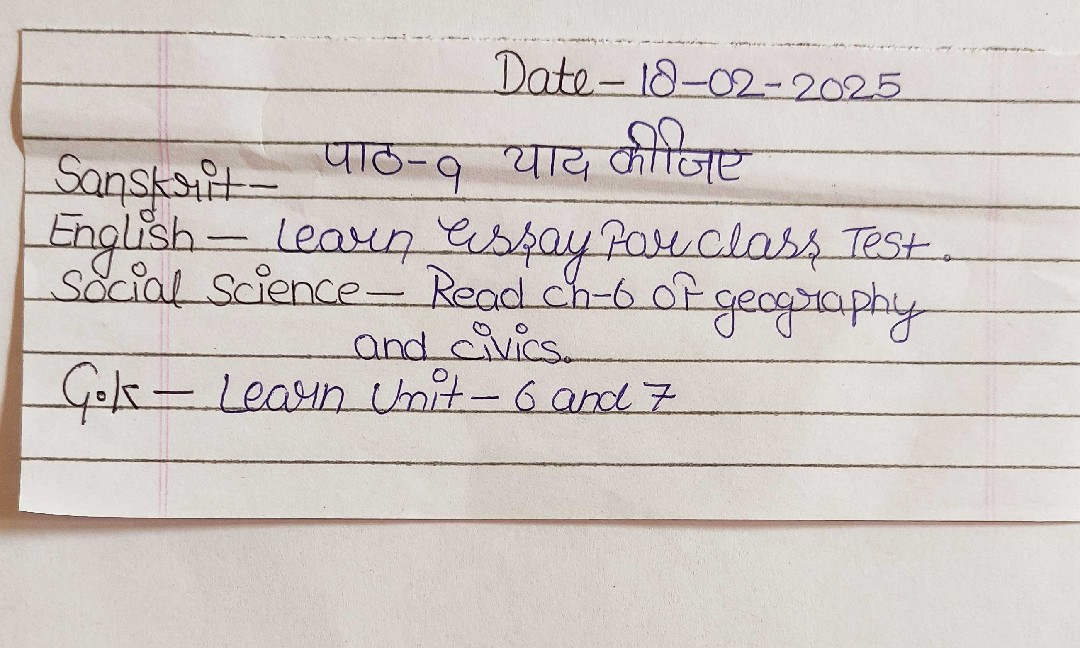 Date - 18-02-2025
Sanskrit - पाठ-9 याद कीजिए
English - Learn Essay For class Test.
Social Science - Read ch-6 of geography
and civics.
G.k - Learn Unit - 6 and 7